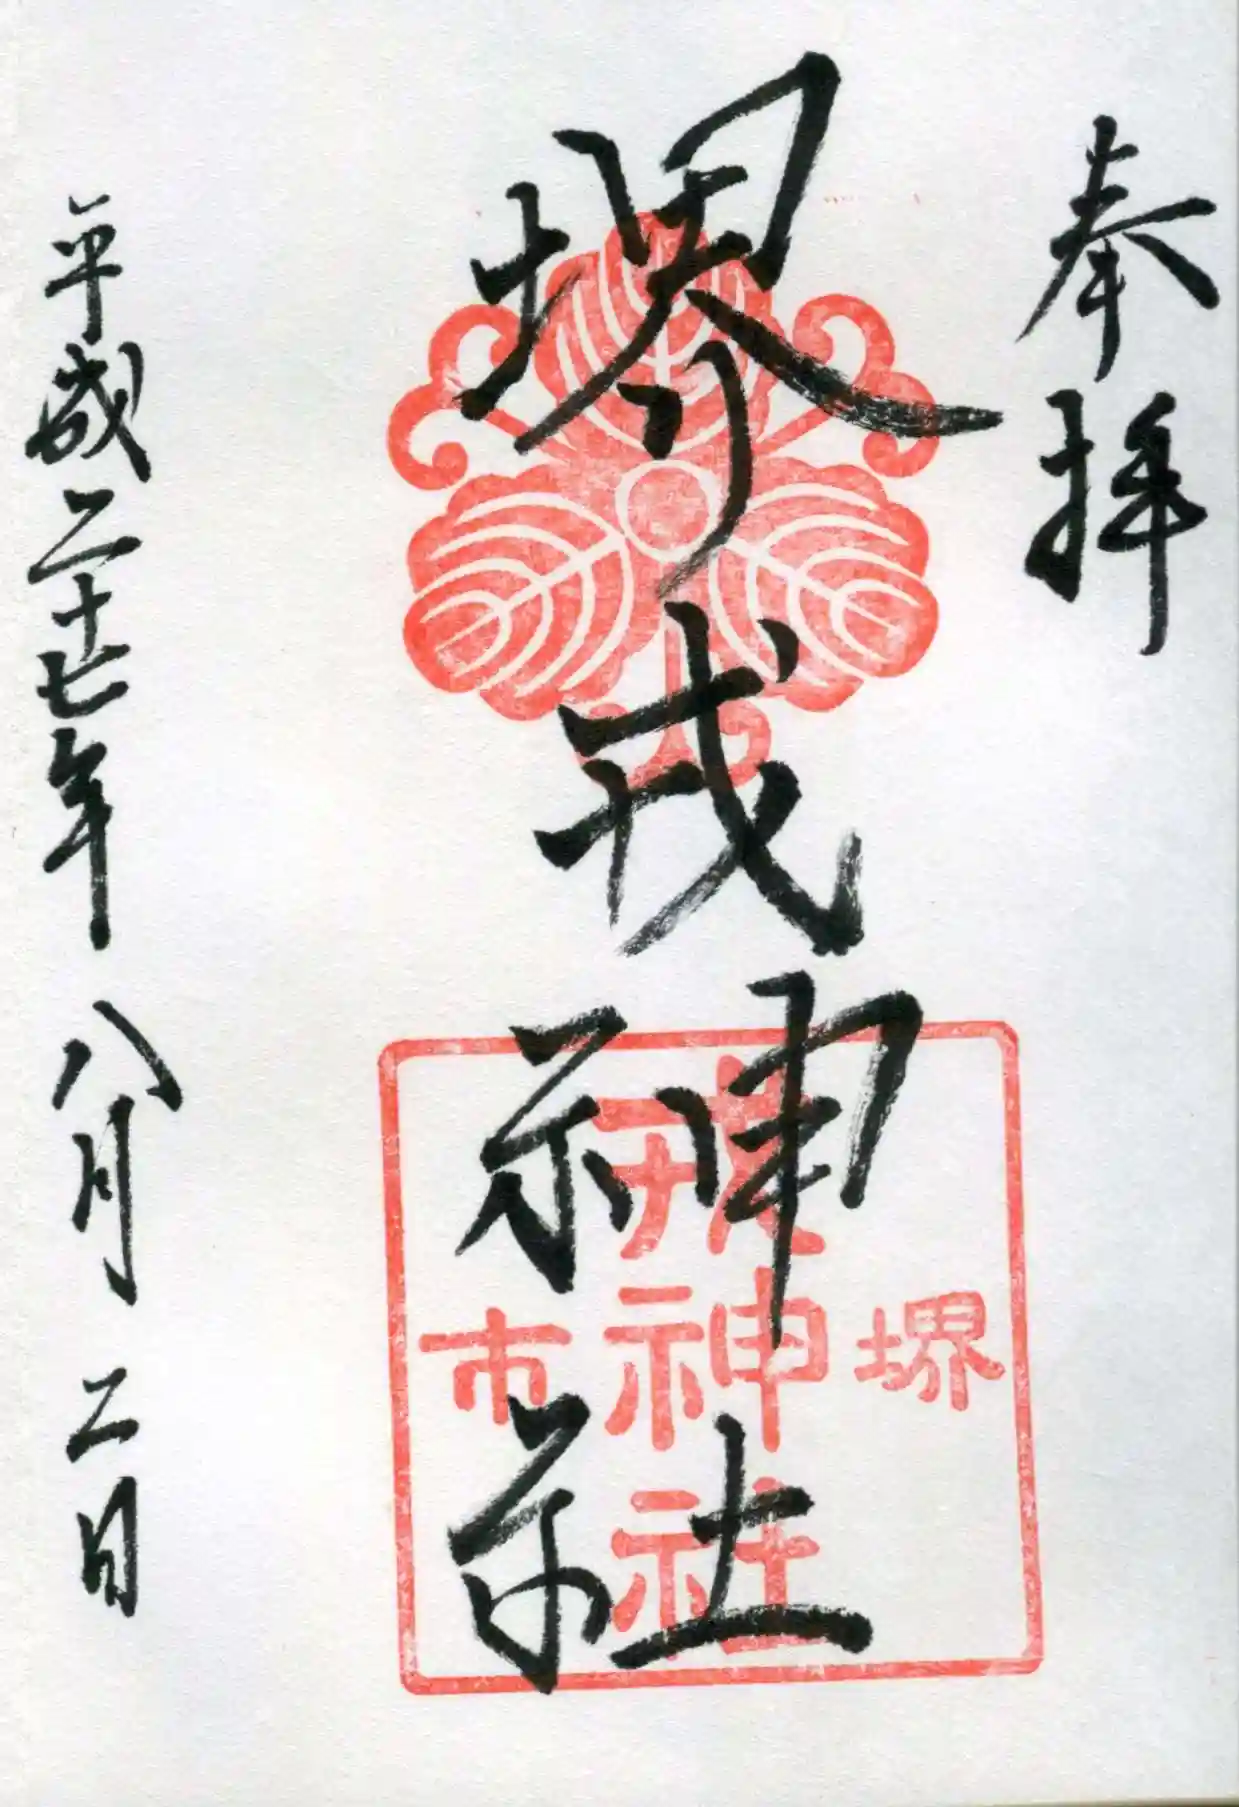 奉拝
堺戎神社
堺
戎神社
市
平成二十七年八月二日